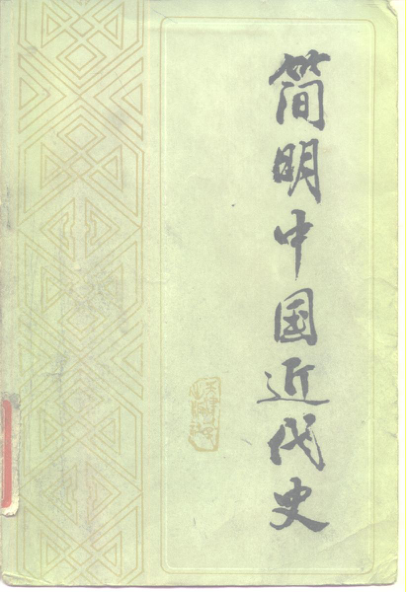 简明中国近代史